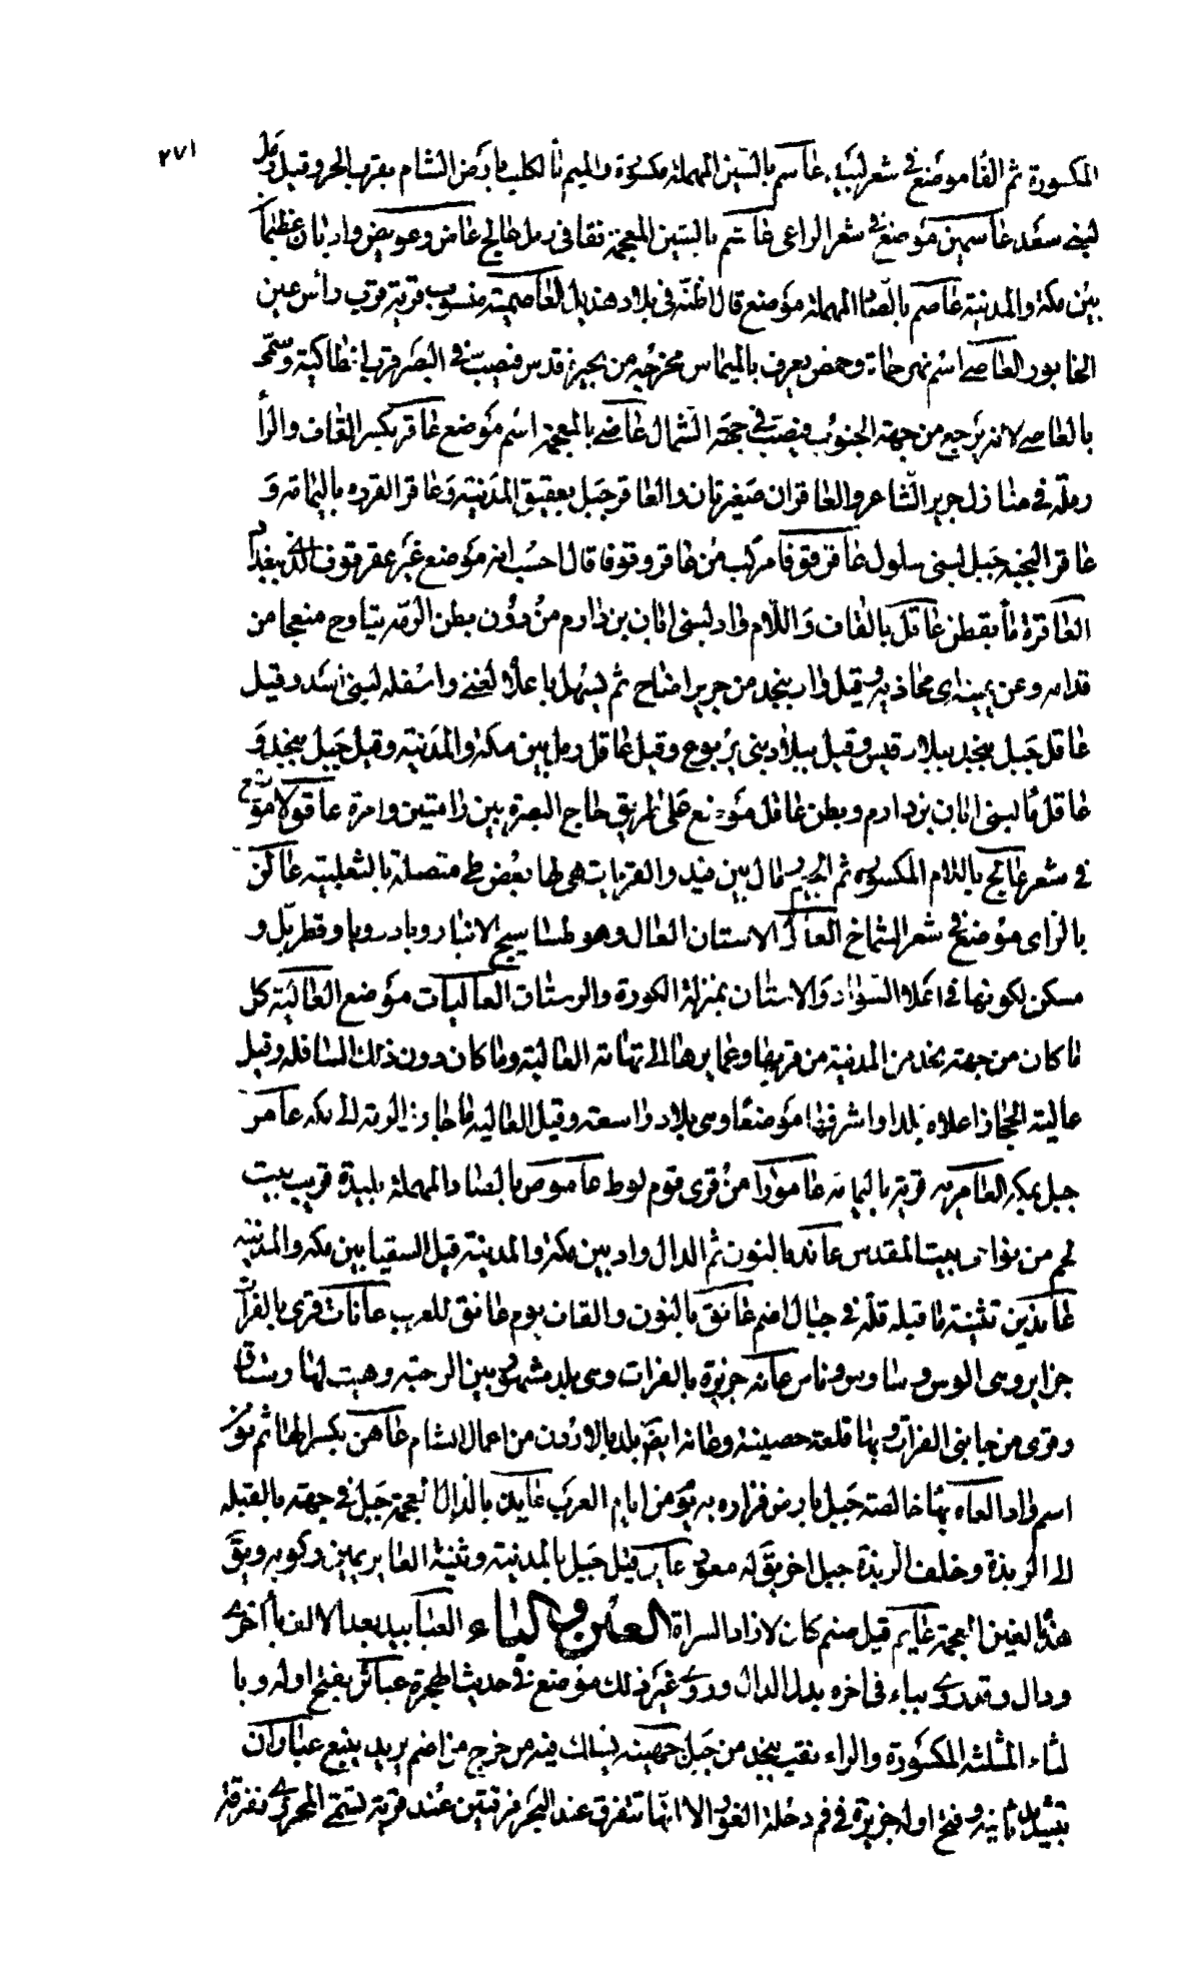 ٢٧١
المكسورة ثم الفا موضع في شعر لبيد عاسم بالسّين المهملة مكسورة والميم ما لكلب بارض الشام بقرب الحر وقيل رمل
لبنى سعد عاسمين موضع في شعر الراعى عاشم بالشين المعجمة نقا في رمل عالج عاض وعويض واديان عظيمان
بين مكة والمدينة عاصم بالصاد المهملة موضع قال اظنه في بلاد هذيل العاصمية منسوب قرية قرب رأس عين
الخابور العاصى اسم نهر حماة وحمص يعرف بالميماس مخرجه من بحيرة قدس فيصب في البحر قرب انطاكية وسمى
بالعاصى لانه يرجع من جهة الجنوب فيصب في جهة الشمال عاضى بالمعجمة اسم موضع عاقر بكسر القاف والرأ
رملة في منازل جرير الشاعر والعاقران صغيرتان والعاقر جبل بعقيق المدينة وعاقر الفرده باليمامة و
عاقر النجبة جبل لبنى سلول عاقرقوفا مركب من عاقر وقوفا قال احسب انه موضع غير عقرقوف الذى ببغداد
العاقرة مأ بقطن عاقل بالقاف واللام واد لبنى ابان بن دارم من دون بطن الرمّة يناوح منعجا من
قدامه وعن يمينه اى محاذيه وقيل واد بنجد من حرير اضاخ ثم يسهل باعلاه لغنى واسفله لبنى اسد وقيل
عاقل جبل بنجد ببلاد قيس وقيل ببلاد بنى يربوع وقيل عاقل رمل بين مكة والمدينة وقيل جبل بنجد و
عاقل مأ لبنى ابان بن دارم وبطن عاقل موضع على طريق حاج البصرة بين رامتين وامرة عاقولا موضع
في شعر عالج باللام المكسورة ثم الجيم رمال بين فيد والقريات هى لها بعض طى متصلة بالثعلبية عالز
بالزاى موضع في شعر الشماخ العال الاستان العال وهو طساسيج الانبار وبادرويا وقطربّل و
مسكن لكونها في اعلا السواد والاستان بمنزلة الكورة والرستاق العاليات موضع العالية كل
ما كان من جهة نجد من المدينة من قريها وعمايرها الى تهامة العالية وما كان دون ذلك السافلة وقيل
عالية الحجاز اعلاه بلدا واشرفها موضعا وهى بلاد واسعة وقيل العالية ما جاوز الرمة الى مكة عامر
جبل بمكة العامرية قرية باليمامة عامورا من قرى قوم لوط عاموص بالصاد المهملة بليدة قريب بيت
لحم من نواحى بيت المقدس عاند بالنون ثم الدال واد بين مكة والمدينة قبل السقيا بين مكة والمدينة
عاندين تثنية ما قبله قلة في جبال اضم عانق بالنون والقاف يوم عانق للعرب عانات قرى بالفرات
جزاير وهى الوس وساوس وناوس عانه جزيرة بالفرات وهى بلد مشهور بين الرحبة وهيت لها رستاق
وقرى من جانبى الفرات وبها قلعة حصينة وعانه ايضا بلد بالاردن من اعمال الشام عاهن بكسر الها ثم نون
اسم واد العاه بها خالصة جبل بارض فزاره به يوم من ايام العرب عايذ بالذال المعجمة جبل في جهة القبله
الى الربذة وخلف الربذة جبل اخر يق له معوذ عاير قيل جبل بالمدينة وثنية العاير يمين ركوبه ويق
هذا بالغين المعجمة عايم قيل صنم كان لازد السراة العين والباء العبابيد بعد الالف بأ اخرى
ودال وقد روى بباء في اخره بدل الدال وروى غير ذلك موضع في حديث الهجرة عباثر بفتح اوله وبا
لثاء المثلثة المكسورة والراء نقب بنجد من جبل جهينة يسلك فيه من خرج من اضم يريد ينبع عبادان
بتشديد ثانيه وفتح اوله جزيرة في فم دجلة العورا الا انها تتفرق عند البحر فرقتين عند قرية تسمى المحرزى ففرقة